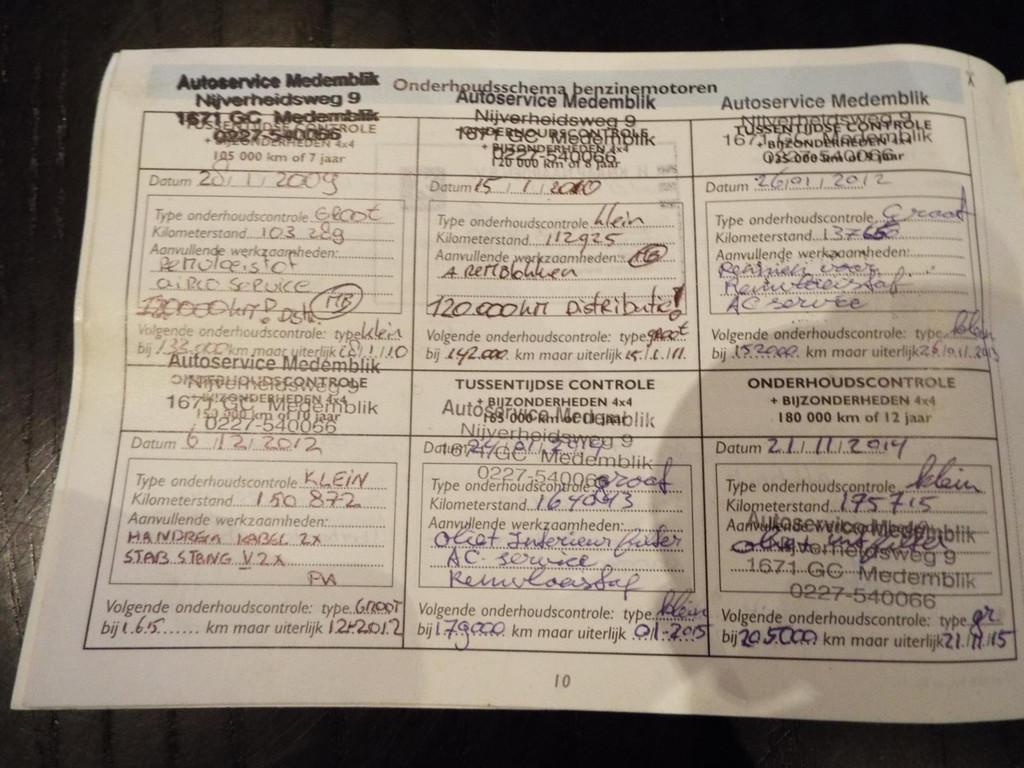 Onderhoudsschema benzinemotoren
Autoservice Medemblik
Nijverheidsweg 9
1671 GC Medemblik
0227-540066
TUSSENTIJDSE CONTROLE
+ BIJZONDERHEDEN 4x4
105 000 km of 7 jaar
Datum 20/1/2009
Type onderhoudscontrole GROOT
Kilometerstand 103 289
Aanvullende werkzaamheden:
REMVLOEISTOF
AIRCO SERVICE
120000 km! Distr MB
Volgende onderhoudscontrole: type klein
bij km maar uiterlijk /1/10
Autoservice Medemblik
Nijverheidsweg 9
1671 GC Medemblik
0227-540066
ONDERHOUDSCONTROLE
+ BIJZONDERHEDEN 4x4
120 000 km of 8 jaar
Datum 15/1/2010
Type onderhoudscontrole klein
Kilometerstand 112925
Aanvullende werkzaamheden: MB
A REMBlokken
120.000 km Distributie!
Volgende onderhoudscontrole: type groot
bij 142.000 km maar uiterlijk 15/1/11
Autoservice Medemblik
Nijverheidsweg 9
1671 GC Medemblik
0227-540066
TUSSENTIJDSE CONTROLE
+ BIJZONDERHEDEN 4x4
Datum 26/01/2012
Type onderhoudscontrole Groot
Kilometerstand 137650
Aanvullende werkzaamheden:
Remmen voor
Remvloeistof
AC service
Volgende onderhoudscontrole: type klein
bij 152000 km maar uiterlijk 26/01/2013
Autoservice Medemblik
Nijverheidsweg 9
1671 GC Medemblik
0227-540066
ONDERHOUDSCONTROLE
+ BIJZONDERHEDEN 4x4
150 000 km of 10 jaar
Datum 6/12/2012
Type onderhoudscontrole KLEIN
Kilometerstand 150 872
Aanvullende werkzaamheden:
HANDREM KABEL 2x
STAB STANG V 2x
Volgende onderhoudscontrole: type GROOT
bij 165 km maar uiterlijk 12-2012
TUSSENTIJDSE CONTROLE
+ BIJZONDERHEDEN 4x4
165 000 km of 11 jaar
Autoservice Medemblik
Nijverheidsweg 9
1671 GC Medemblik
0227-540066
Datum 24/01/2014
Type onderhoudscontrole groot
Kilometerstand 164043
Aanvullende werkzaamheden:
Interieur filter
AC service
Remvloeistof
Volgende onderhoudscontrole: type klein
bij 179000 km maar uiterlijk 01-2015
ONDERHOUDSCONTROLE
+ BIJZONDERHEDEN 4x4
180 000 km of 12 jaar
Datum 21/11/2014
Type onderhoudscontrole klein
Kilometerstand 195715
Aanvullende werkzaamheden:
Autoservice Medemblik
Nijverheidsweg 9
1671 GC Medemblik
0227-540066
Volgende onderhoudscontrole: type gr
bij 205000 km maar uiterlijk 21/11/15
10